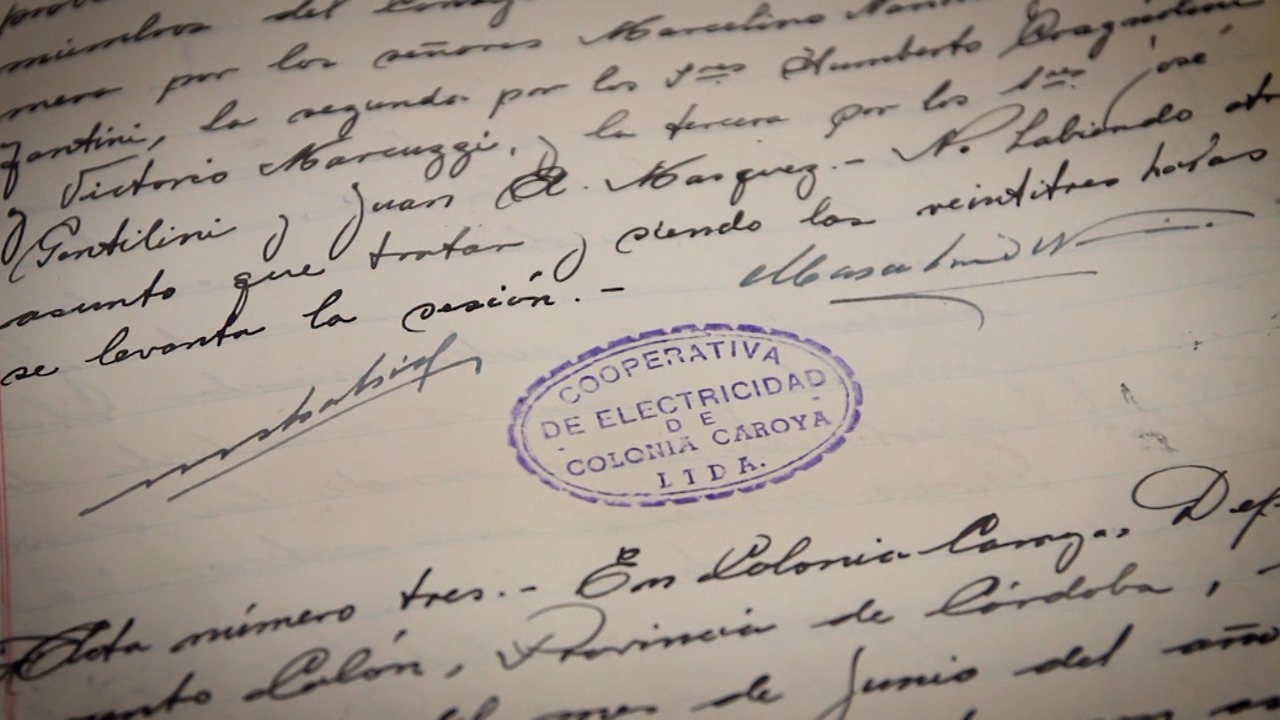 miembros del Consejo
mera por los señores Marcelino
Fantini, la segunda por los Sres Humberto
y Victorio Marcuzzi, y la tercera por los Sres José
Gentilini y Juan A. Masquez.- No habiendo otro
asunto que tratar y siendo las veintitres horas
se levanta la sesión.-
COOPERATIVA
DE ELECTRICIDAD
DE
COLONIA CAROYA
LTDA.
Acta número tres.- En Colonia Caroya, Dep
mento Colón, Provincia de Córdoba,
mes de Junio del año